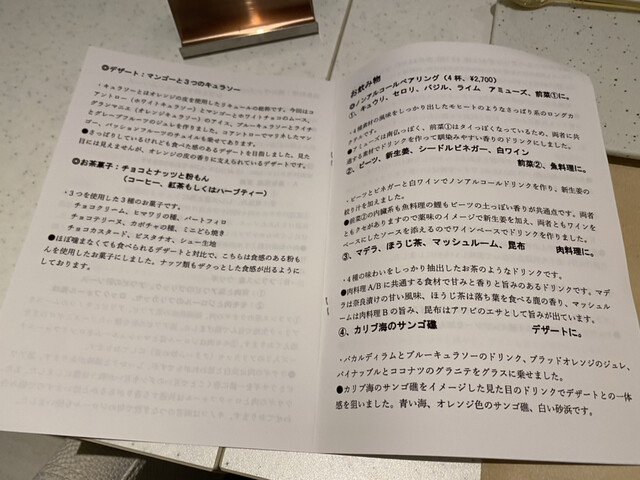 ✪デザート：マンゴーと３つのキュラソー
・キュラソーとはオレンジの皮を使用したリキュールの総称です。今回はコ
アントロー（ホワイトキュラソー）とマンゴーとホワイトチョコのムース、
グランマニエ（オレンジキュラソー）のアイス、ブルーキュラソーとライチ
とグレープフルーツのジュレを作りました。コアントローでマリネしたマン
ゴー、パッションフルーツのチュイルも乗せてあります。
●さっぱりしているけれども食べた感のあるデザートを目指しました。見た
目には見えませんが、オレンジの皮の香りに支えられているデザートです。
✪お茶菓子：チョコとナッツと粉もん
（コーヒー、紅茶もしくはハーブティー）
・３つを使用した３種のお菓子です。
チョコクリーム、ヒマワリの種、パートフィロ
チョコテリーヌ、カボチャの種、ミニどら焼き
チョコカスタード、ピスタチオ、シュー生地
●ほぼ噛まなくても食べられるデザートと対比で、こちらは食感のある粉も
んを使用したお菓子にしました。ナッツ類もザクっとした食感が出るようにし
ております。
お飲み物
✪ノンアルコールペアリング（４杯、¥2,700）
①、キュウリ、セロリ、バジル、ライム　アミューズ、前菜①に。
・４種素材の風味をしっかり出したモヒートのようなさっぱり系のロングカ
クテルです。
●アミューズは南仏っぽく、前菜①はタイっぽくなっているため、両者に共
通する素材でドリンクを作って馴染みやすい香りのドリンクにしました。
②、ビーツ、新生姜、シードルビネガー、白ワイン
前菜②、魚料理に。
・ビーツとビネガーと白ワインでノンアルコールドリンクを作り、新生姜の
絞り汁を加えました。
●前菜②の内臓系も魚料理の鰹もビーツの土っぽい香りが共通点です。両者
ともクセがありますので薬味のイメージで新生姜を加え、両者ともワインを
ベースにしたソースを添えるのでワインベースでドリンクを作りました。
③、マデラ、ほうじ茶、マッシュルーム、昆布　肉料理に。
・４種の味わいをしっかり抽出したお茶のようなドリンクです。
●肉料理 A/B に共通する食材で甘みと香りと旨みのあるドリンクです。マデ
ラは奈良漬けの甘い風味、ほうじ茶は落ち葉を食べる鹿の香り、マッシュル
ームは肉料理 B の旨み、昆布はアワビのエサとして旨みが出ています。
④、カリブ海のサンゴ礁　デザートに。
・バカルディラムとブルーキュラソーのドリンク、ブラッドオレンジのジュレ、
パイナップルとココナツのグラニテをグラスに乗せました。
●カリブ海のサンゴ礁をイメージした見た目のドリンクでデザートとの一体
感を狙いました。青い海、オレンジ色のサンゴ礁、白い砂浜です。